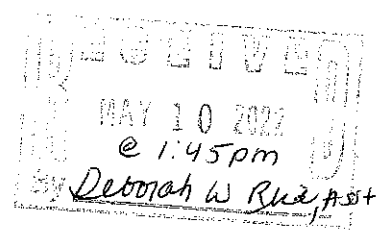 RECEIVED
MAY 10 2022
@ 1:45pm
By Deborah W Rice, Asst